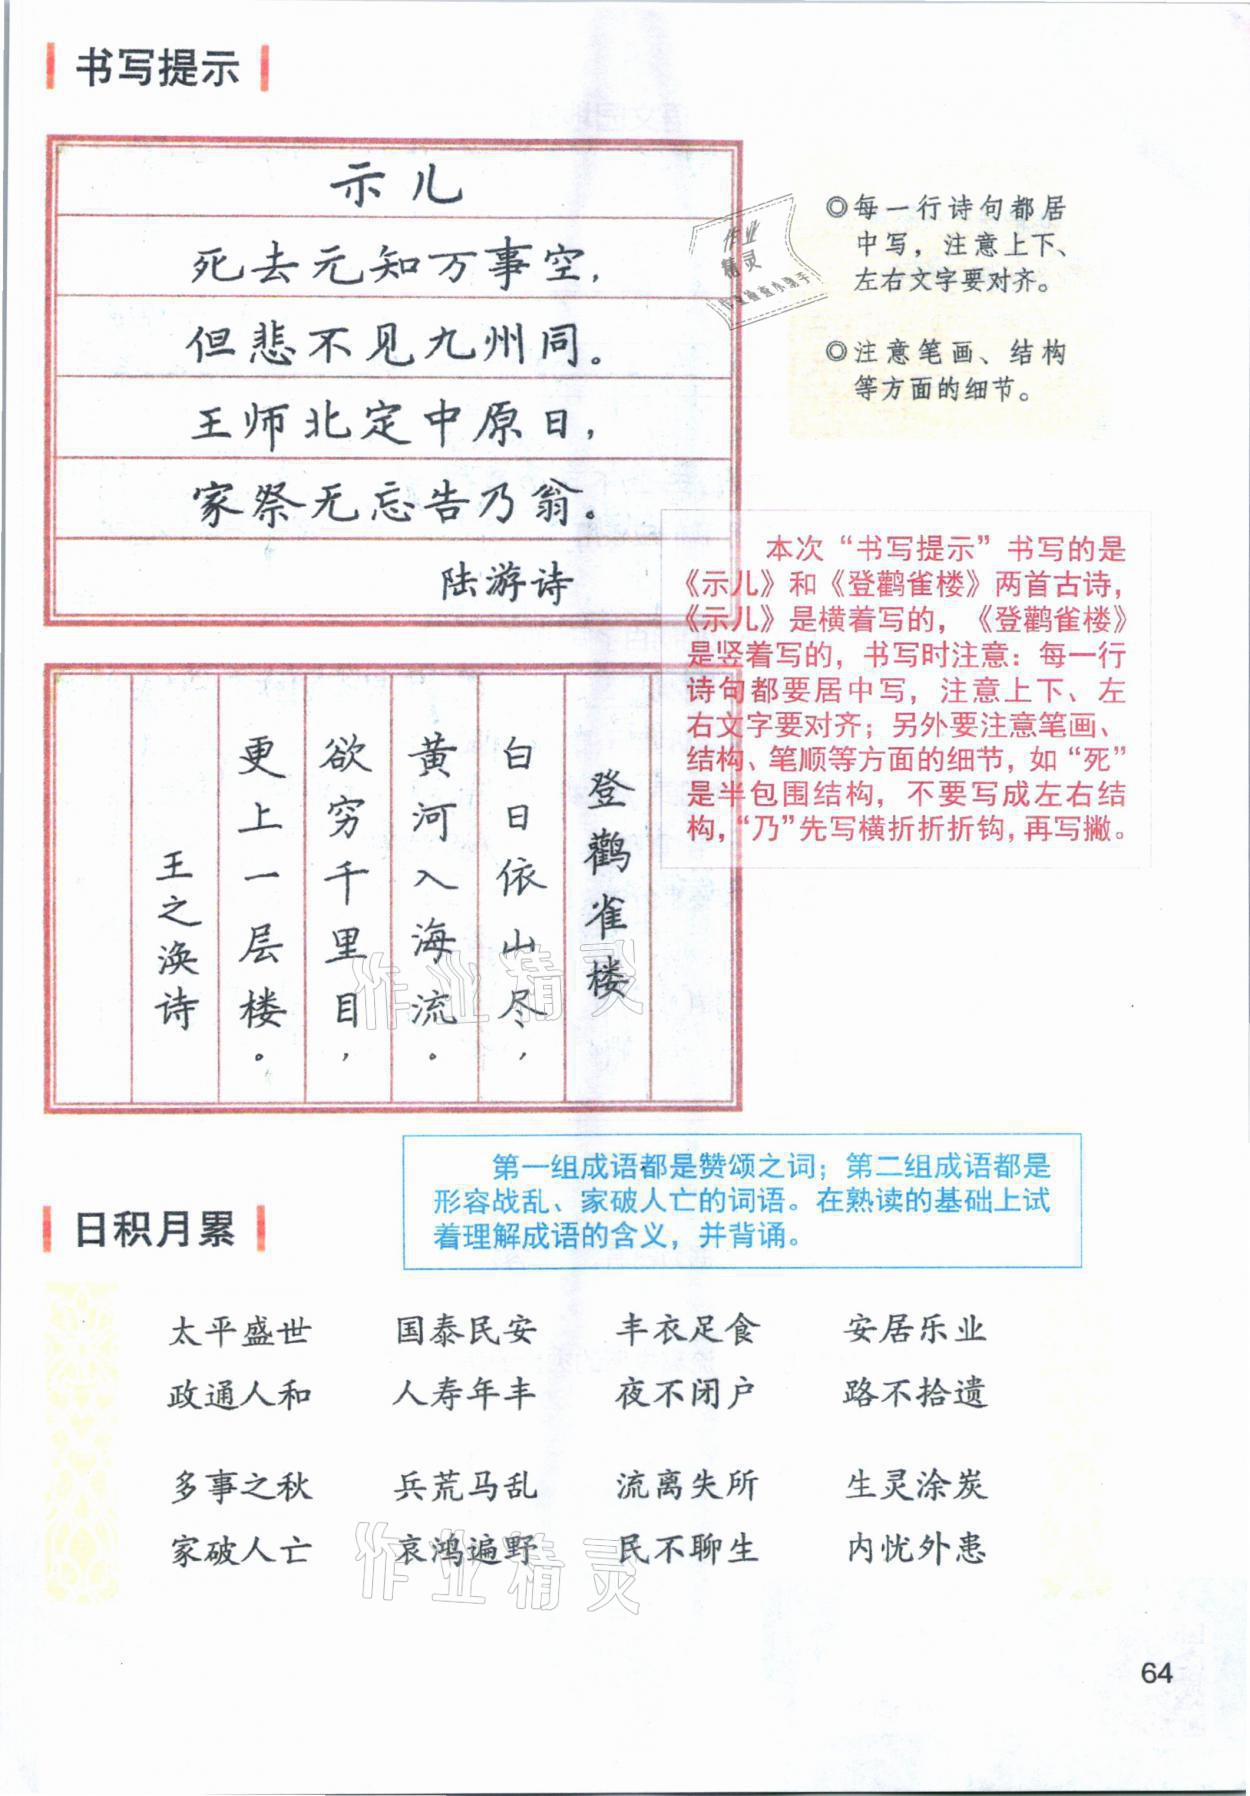 书写提示
示儿
死去元知万事空，
但悲不见九州同。
王师北定中原日，
家祭无忘告乃翁。
陆游诗
◎每一行诗句都居
中写，注意上下、
左右文字要对齐。
◎注意笔画、结构
等方面的细节。
作业
精灵
本次“书写提示”书写的是
《示儿》和《登鹳雀楼》两首古诗，
《示儿》是横着写的，《登鹳雀楼》
是竖着写的，书写时注意：每一行
诗句都要居中写，注意上下、左
右文字要对齐；另外要注意笔画、
结构、笔顺等方面的细节，如“死”
是半包围结构，不要写成左右结
构，“乃”先写横折折折钩，再写撇。
登鹳雀楼
白日依山尽，
黄河入海流。
欲穷千里目，
更上一层楼。
王之涣诗
作业精灵
第一组成语都是赞颂之词；第二组成语都是
形容战乱、家破人亡的词语。在熟读的基础上试
着理解成语的含义，并背诵。
日积月累
太平盛世 国泰民安 丰衣足食 安居乐业
政通人和 人寿年丰 夜不闭户 路不拾遗
多事之秋 兵荒马乱 流离失所 生灵涂炭
家破人亡 哀鸿遍野 民不聊生 内忧外患
作业精灵
64